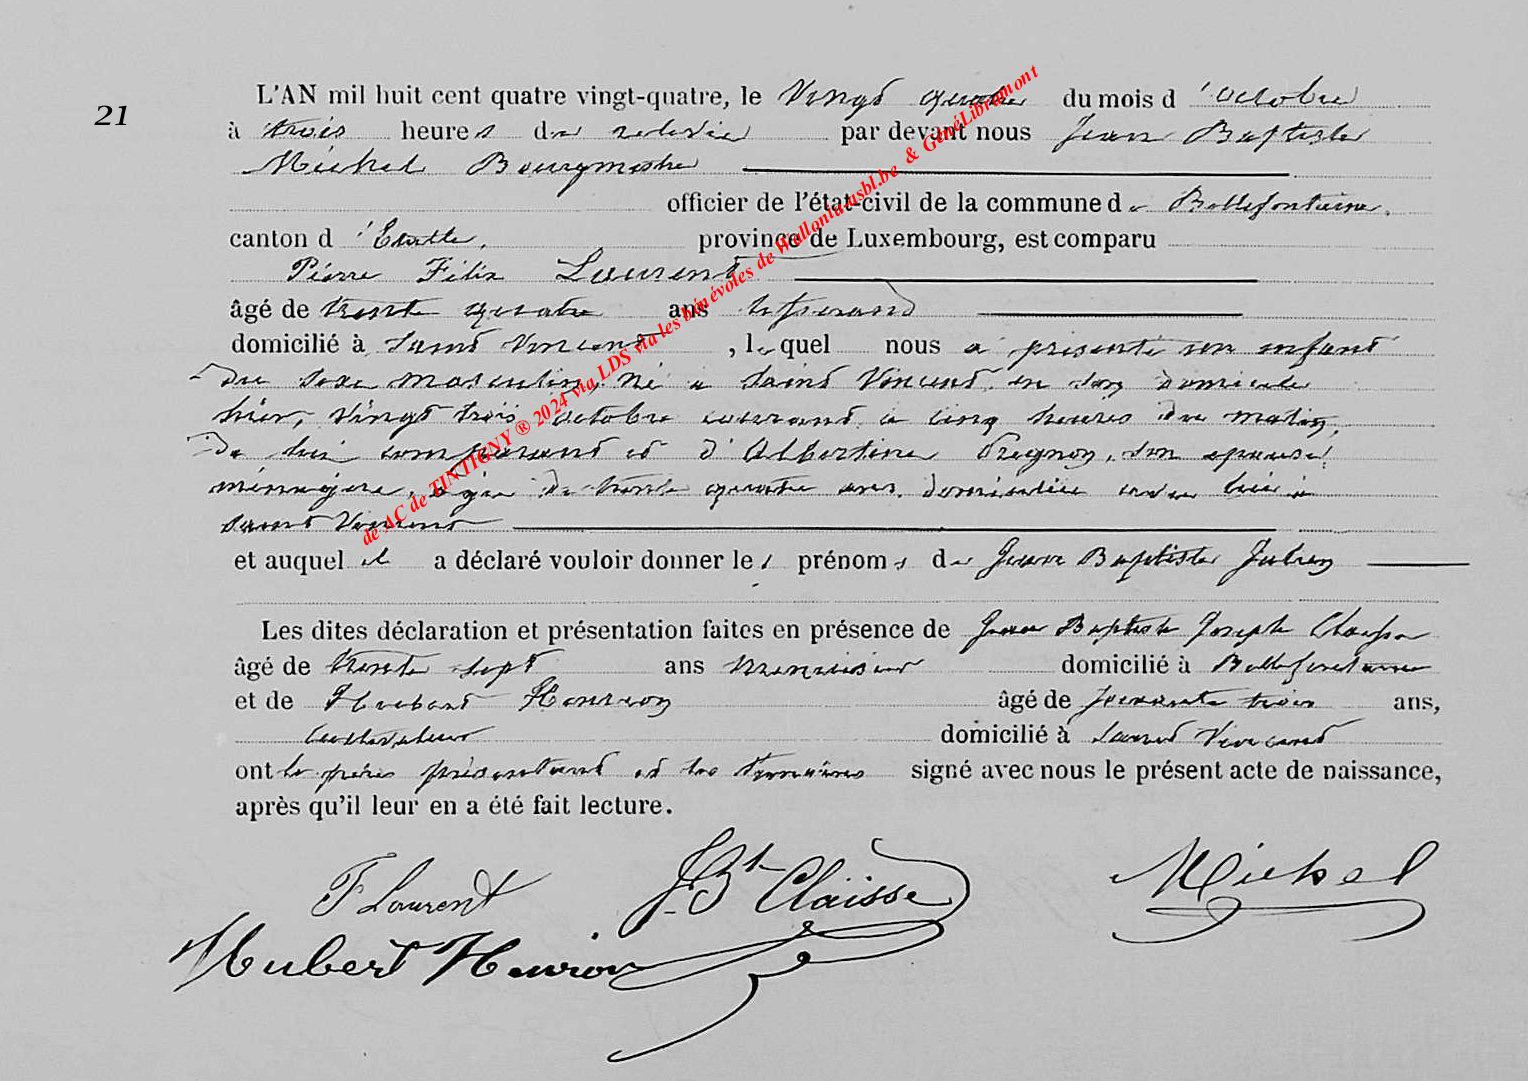 21
L'AN mil huit cent quatre vingt-quatre, le vingt quatre du mois d'octobre
à trois heures du relevée par devant nous Jean Baptiste
Michel Bourgmestre
officier de l'état-civil de la commune de Bellefontaine,
canton d'Etalle, province de Luxembourg, est comparu
Pierre Félix Laurent
âgé de trente quatre ans
domicilié à Saint Vincent, lequel nous a présenté un enfant
du sexe masculin, né à Saint Vincent, en son domicile
hier, vingt trois octobre courant à cinq heures du matin,
de lui comparant et d'Albertine son épouse,
ménagère, agée de trente quatre ans, domiciliée avec lui à
Saint Vincent
et auquel il a déclaré vouloir donner les prénoms de Jean Baptiste Julien
Les dites déclaration et présentation faites en présence de Jean Baptiste Joseph Claisse
âgé de trente sept ans menuisier domicilié à Bellefontaine
et de Hubert Henrion âgé de trois ans,
cultivateur domicilié à Saint Vincent
ont le père présentant et les témoins signé avec nous le présent acte de naissance,
après qu'il leur en a été fait lecture.
F Laurent J. Bt Claisse Michel
Hubert Henrion
de AC de TINTIGNY ® 2024 via LDS via les bénévoles de Walloniaasbl.be & GénéLibramont